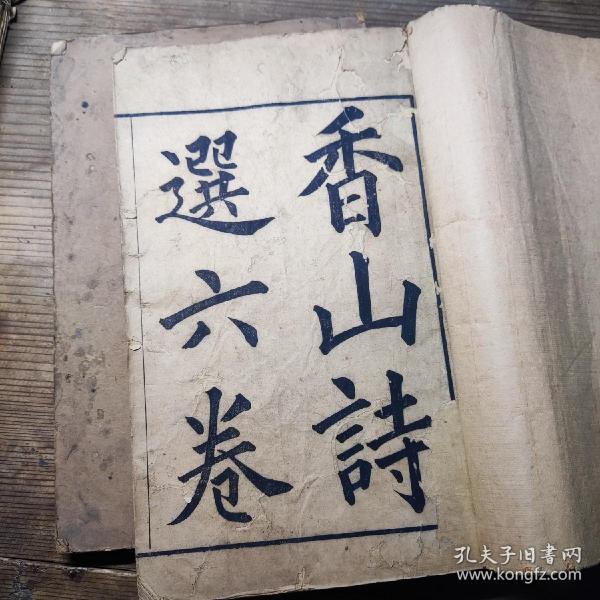 香山詩
選六卷
孔夫子旧書网
www.kongfz.com